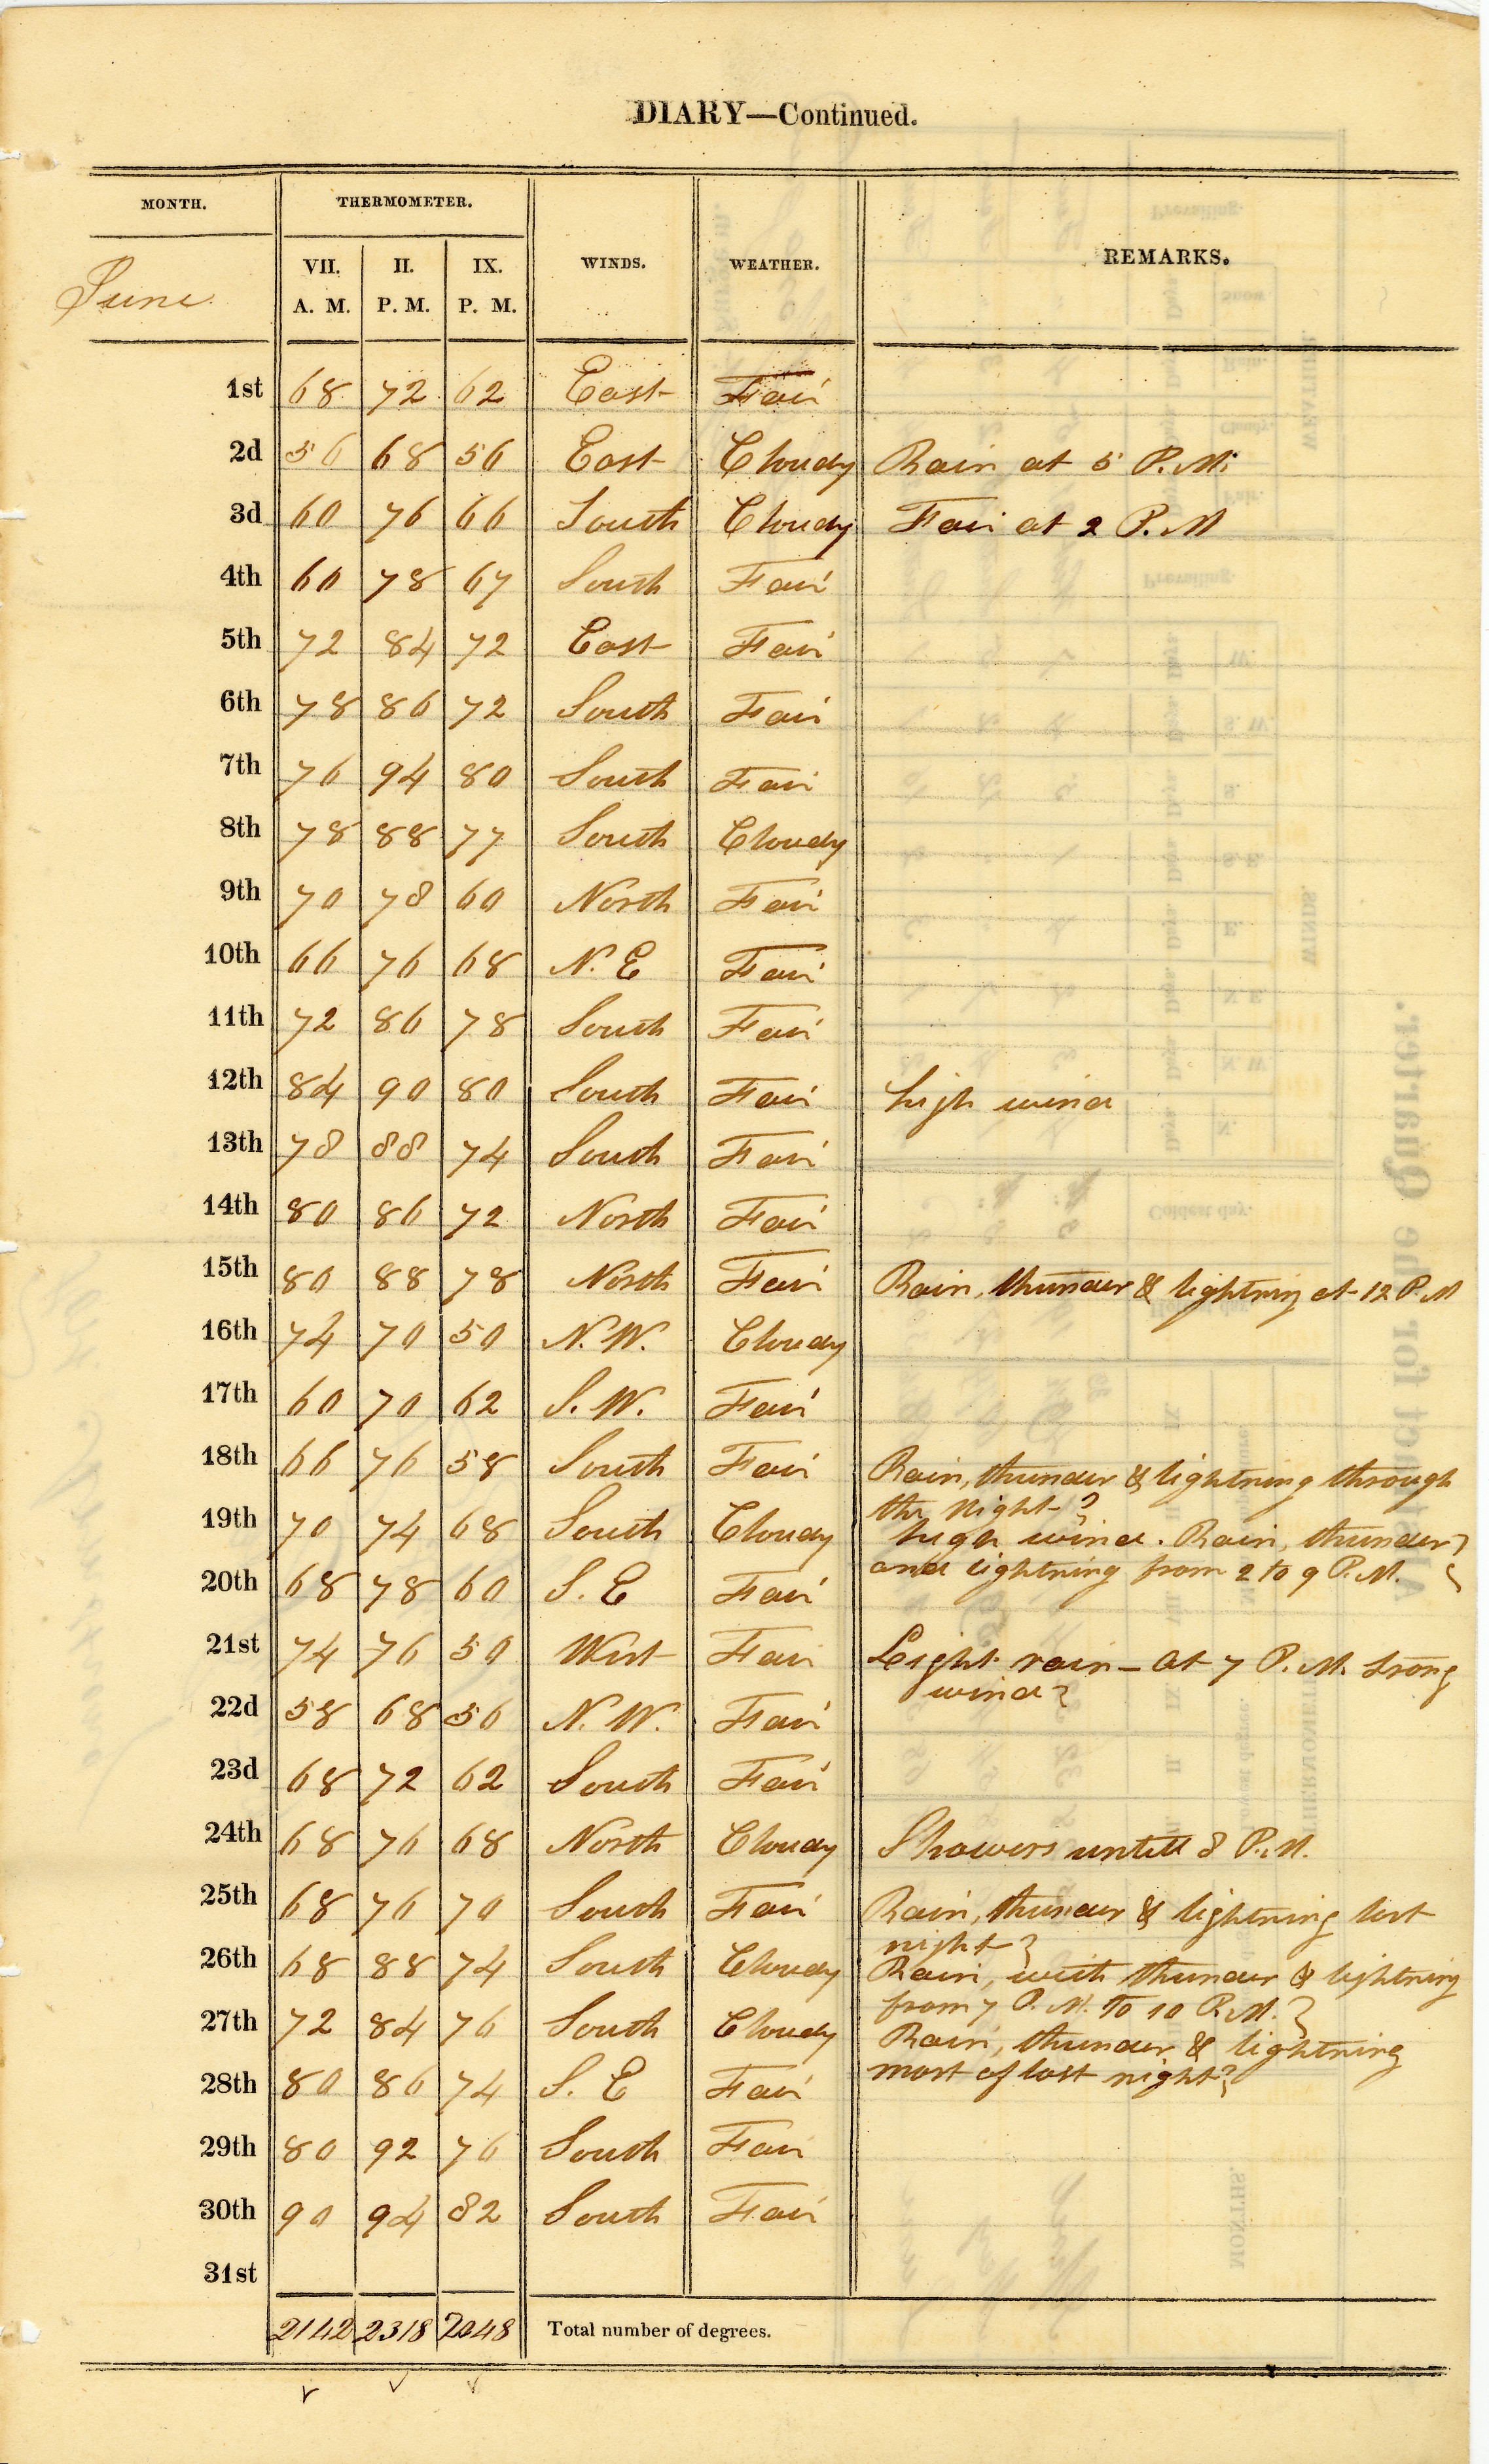 DIARY—Continued.
MONTH. THERMOMETER. WINDS. WEATHER. REMARKS.
June VII. A. M. II. P. M. IX. P. M.
1st 68 72 62 East Fair
2d 56 68 56 East Cloudy Rain at 5 P.M.
3d 60 76 66 South Cloudy Fair at 2 P.M
4th 60 78 67 South Fair
5th 72 84 72 East Fair
6th 78 86 72 South Fair
7th 76 94 80 South Fair
8th 78 88 77 South Cloudy
9th 70 78 60 North Fair
10th 66 76 68 N. E Fair
11th 72 86 78 South Fair
12th 84 90 80 South Fair high wind
13th 78 88 74 South Fair
14th 80 86 72 North Fair
15th 80 88 78 North Fair Rain, thunder & lightning at 12 P.M
16th 74 70 50 N. W. Cloudy
17th 60 70 62 S. W. Fair
18th 66 76 58 South Fair Rain, thunder & lightning through
the night
19th 70 74 68 South Cloudy high wind. Rain, thunder
and lightning from 2 to 9 P.M.
20th 68 78 60 S. E Fair
21st 74 76 50 West Fair Light rain – at 7 P.M. strong
wind
22d 58 68 56 N. W. Fair
23d 68 72 62 South Fair
24th 68 76 68 North Cloudy Showers untill 8 P.M.
25th 68 76 70 South Fair Rain, thunder & lightning last
night
26th 68 88 74 South Cloudy Rain, with thunder & lightning
from 7 P.M. to 10 P.M.
27th 72 84 76 South Cloudy Rain, thunder & lightning
most of last night
28th 80 86 74 S. E Fair
29th 80 92 76 South Fair
30th 90 94 82 South Fair
31st
2142 2318 2048 Total number of degrees.